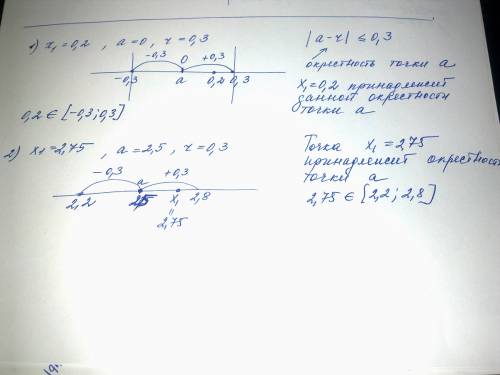 1) x₁=0,2 , a=0, r=0,3
-0,3 0 +0,3
-0,3 a 0,2 0,3
0,2 ∈ [-0,3;0,3]
|a-r| ≤ 0,3
окрестность точки a
x₁=0,2 принадлежит
данной окрестности
точки a
2) x₁=2,75 , a=2,5 , r=0,3
-0,3 a +0,3
2,2 2,5 x₁ 2,8
"
2,75
Точка x₁=2,75
принадлежит окрестность
точки a
2,75 ∈ [2,2; 2,8]